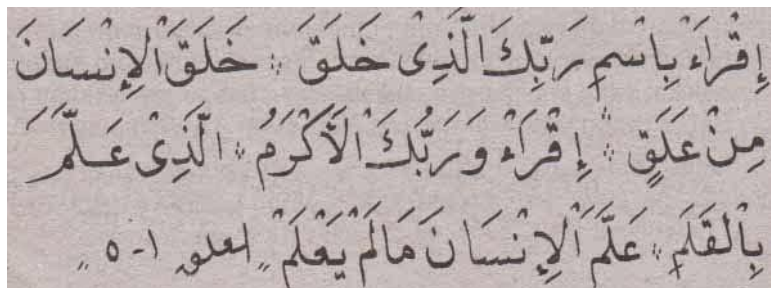 إِقْرَاءْ بِاسْمِ رَبِّكَ الَّذِىْ خَلَقَ ؞ خَلَقَ اْلإِنْسَانَ
مِنْ عَلَقٍ ؞ إِقْرَاءْ وَرَبُّكَ اْلأَكْرَمُ ؞ الَّذِىْ عَلَّمَ
بِاْلقَلَمِ ؞ عَلَّمَ اْلإِنْسَانَ مَالَمْ يَعْلَمْ " العلق ١-٥ "